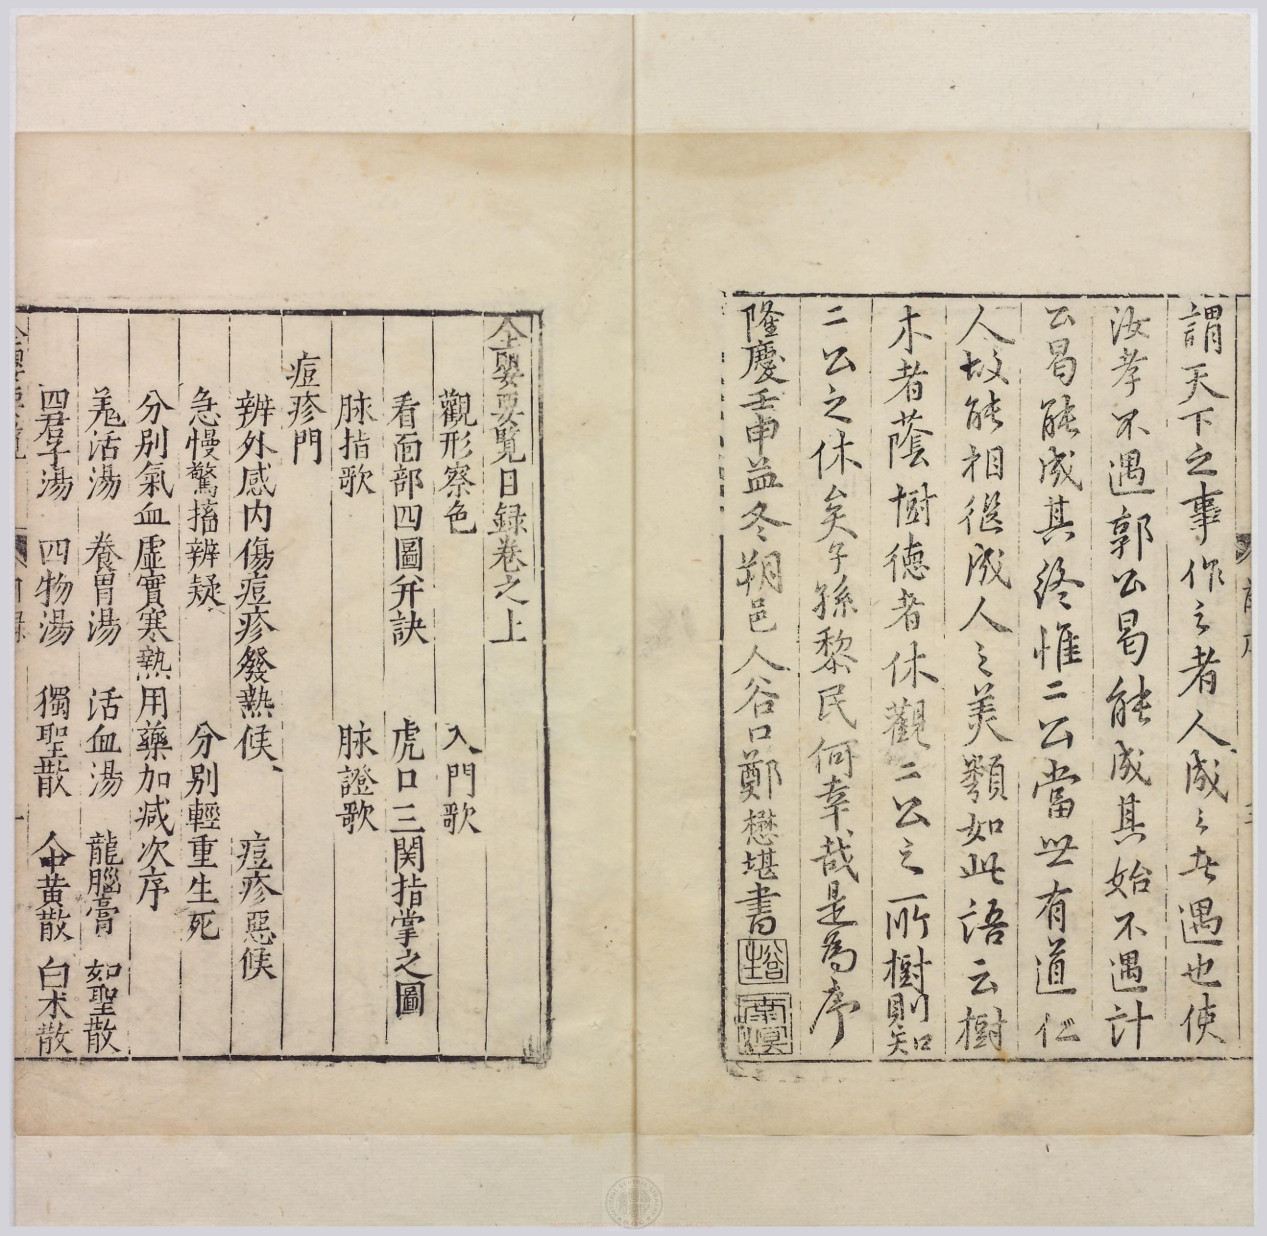 謂天下之事作之者人成之者遇也使
汝孝不遇郭公曷能成其始不遇計
公曷能成其終惟二公當世有道仁
人故能相繼成人之美類如此語云樹
木者蔭樹德者休觀二公之所樹則知
二公之休矣子孫黎民何幸哉是為序
隆慶壬申孟冬朔邑人谷口鄭懋堪書
全嬰要覽目錄卷之上
觀形察色　入門歌
看面部四圖并訣　虎口三関指掌之圖
脉指歌　脉證歌
痘疹門
辨外感內傷痘疹發熱候　痘疹惡候
急慢驚搐辨疑　分別輕重生死
分別氣血虛實寒熱用藥加減次序
羗活湯　養胃湯　活血湯　龍腦膏　如聖散
四君子湯　四物湯　獨聖散　人中黃散　白朮散